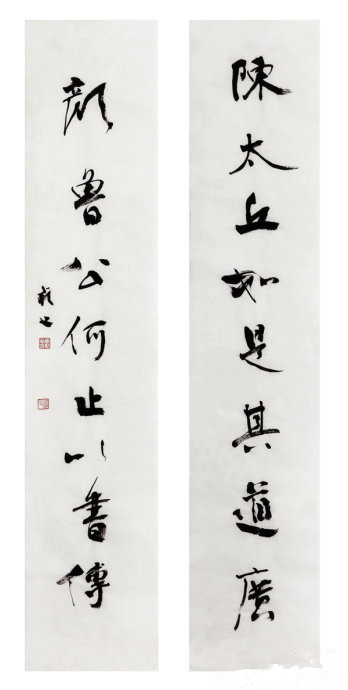 陳太丘如是其道廣
顏魯公何止以書傳